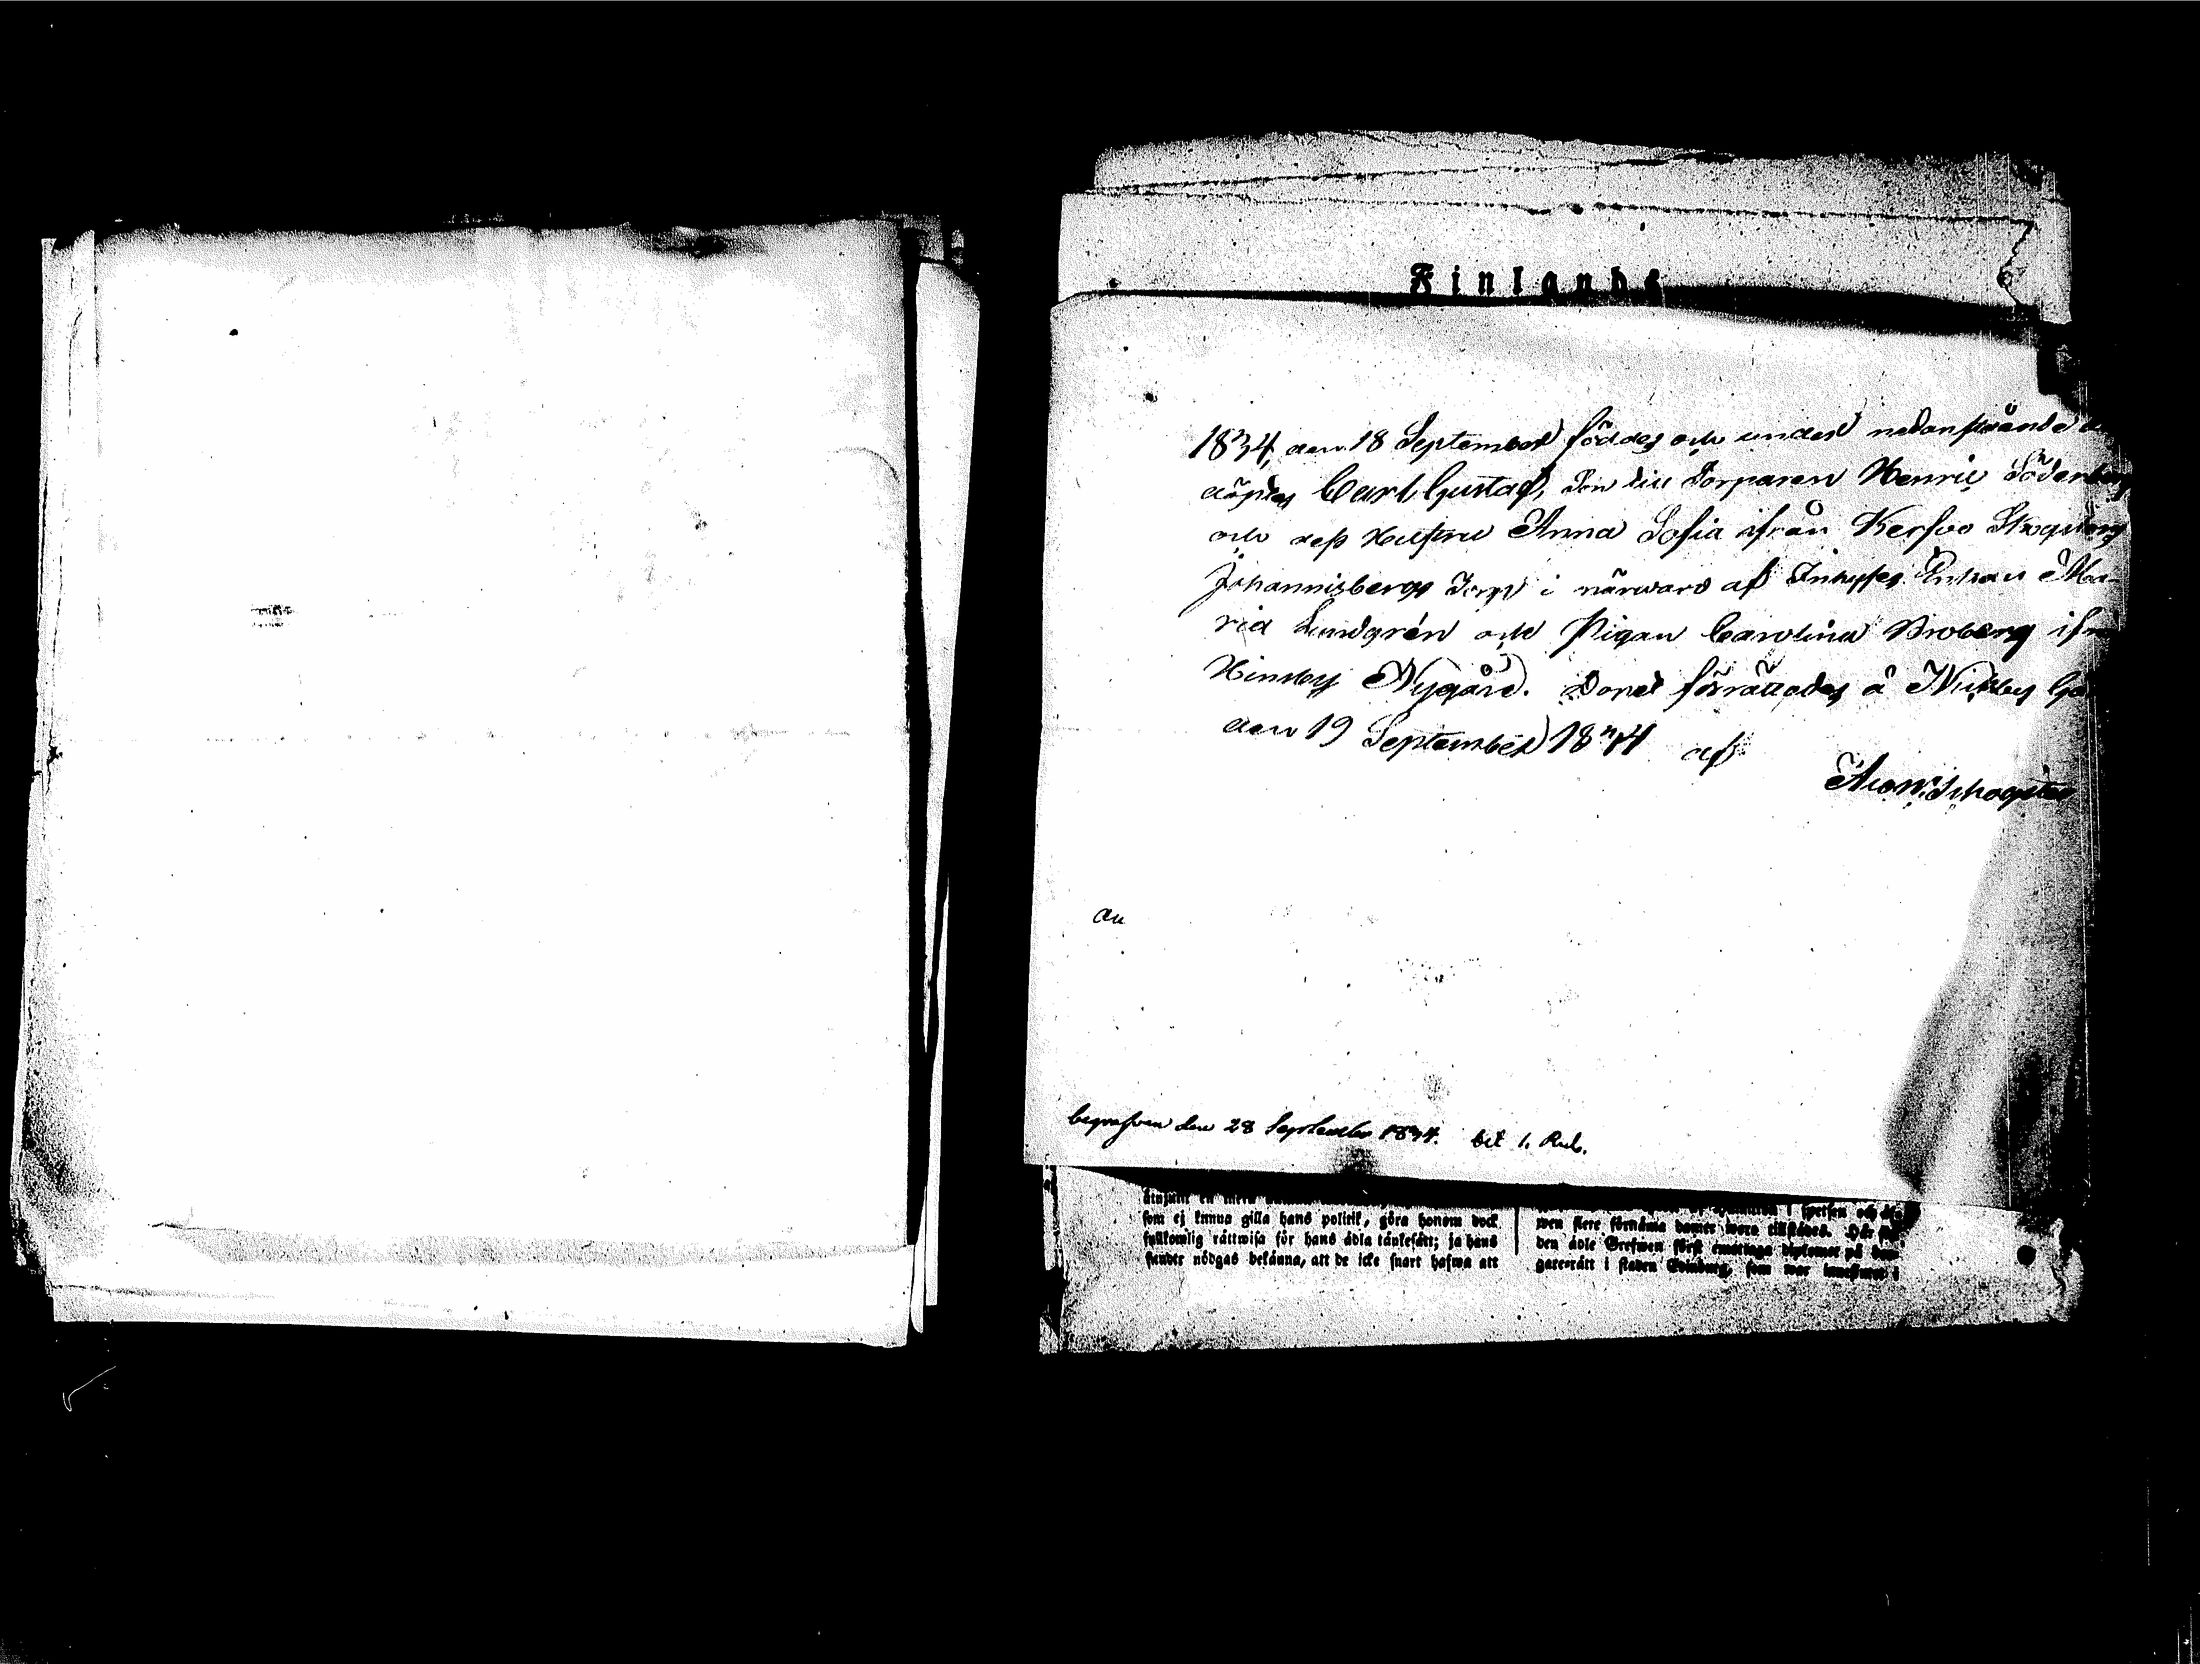 Finlands
1834, den 18 September föddes och under nedanstående
döptes Carl Gustaf, Son till Torparen Henric Söderberg
och dess Hustru Anna Sofia ifrån Kerfvo Skogsberg
Johannisbergs Torp i närwaro af Enkan Ma-
ria Lundgrén och Pigan Carolina Broberg ifrån
Hindsby Nygård. Dopet förrättades å Nickby
den 19 September 1834 af
an
begrafven den 28 September 1834. bet 1. Rub.
som ej kunna gilla hans politik, göra honom dock
fullkomlig rättwisa för hans ädla tänkesätt; ja hans
fiender nödgas bekänna, att de icke snart hafwa att
i spetsen och äf-
wen flere förnäma damer woro tillstädes. Här
den ädle Grefwen först emottaga diplomet på
garerätt i staden Edinburg, som war